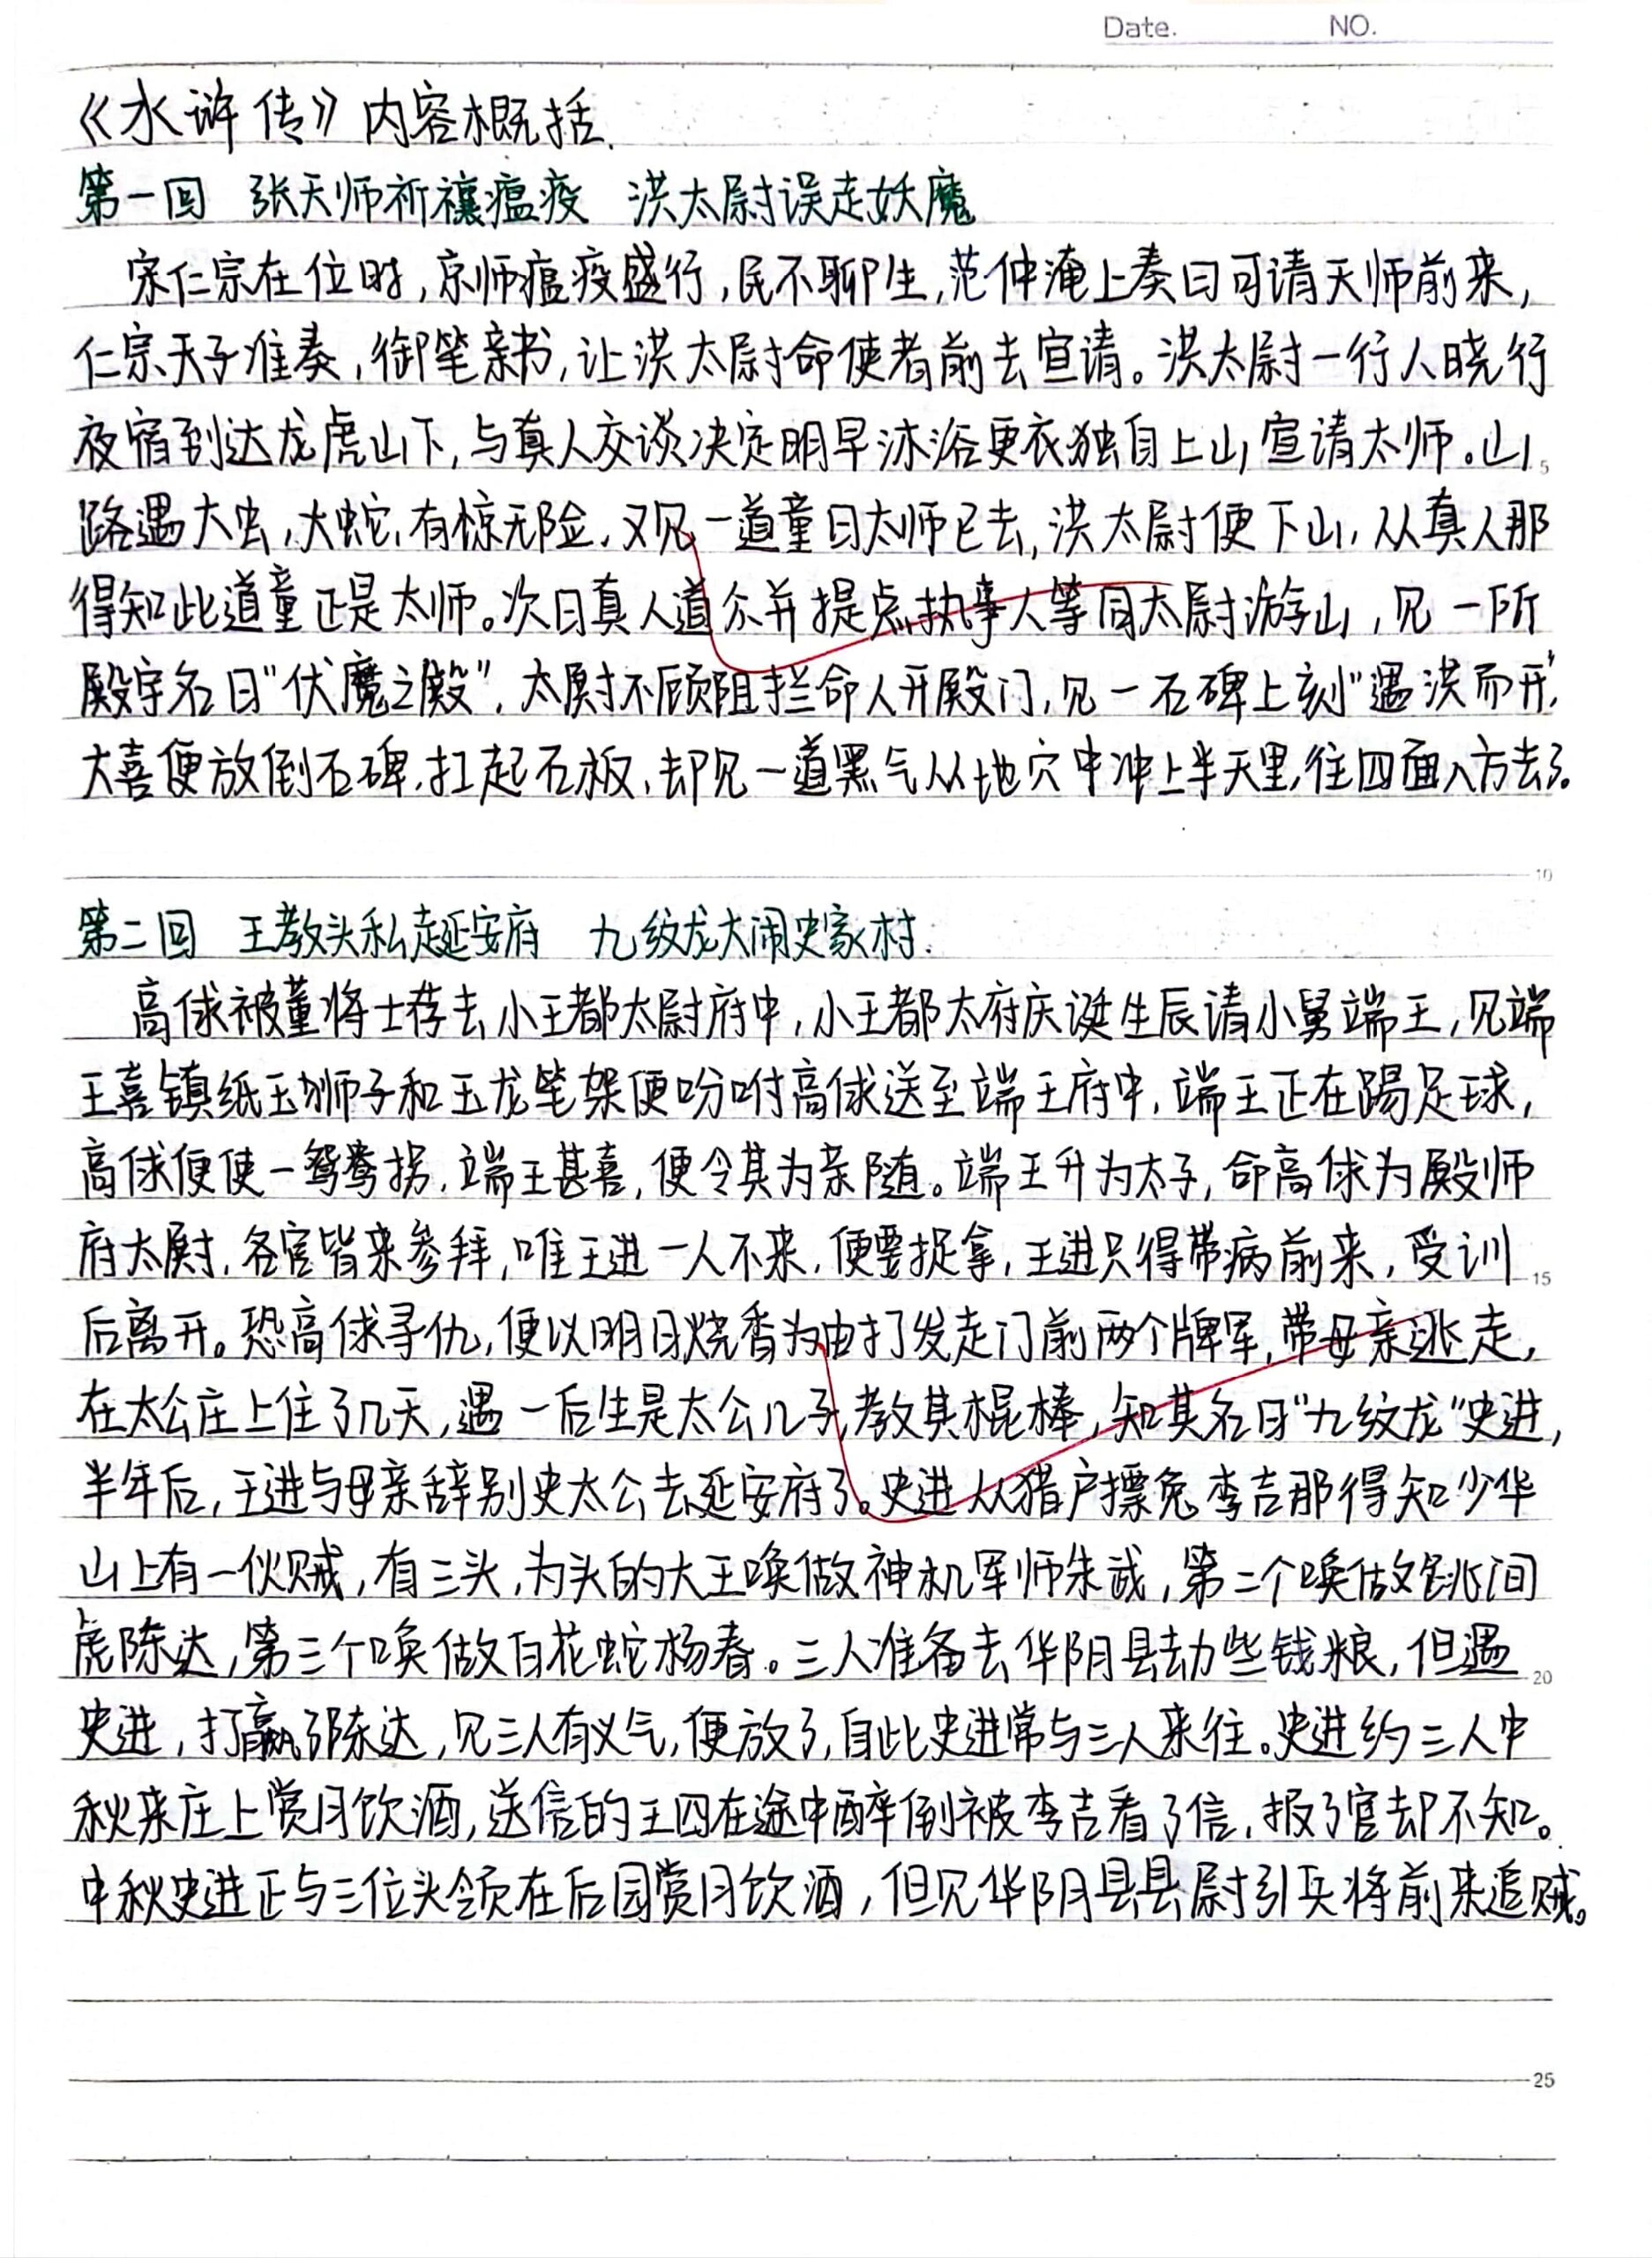 Date. NO.
《水浒传》内容概括.
第一回 张天师祈禳瘟疫 洪太尉误走妖魔
宋仁宗在位时,京师瘟疫盛行,民不聊生,范仲淹上奏曰可请天师前来,
仁宗天子准奏,御笔亲书,让洪太尉命使者前去宣请。洪太尉一行人晓行
夜宿到达龙虎山下,与真人交谈决定明早沐浴更衣独自上山宣请太师。山
5
路遇大虫,大蛇,有惊无险,又见一道童曰太师已去,洪太尉便下山,从真人那
得知此道童正是太师。次日真人道众并提点执事人等同太尉游山,见一所
殿宇名曰“伏魔之殿”,太尉不顾阻拦命人开殿门,见一石碑上刻“遇洪而开”,
大喜便放倒石碑,扛起石板,却见一道黑气从地穴中冲上半天里,往四面八方去了。
10
第二回 王教头私走延安府 九纹龙大闹史家村.
高俅被董将士荐去小王都太尉府中,小王都太府庆诞生辰请小舅端王,见端
王喜镇纸玉狮子和玉龙笔架便吩咐高俅送至端王府中,端王正在踢足球,
高俅便使一鸳鸯拐,端王甚喜,便令其为亲随。端王升为太子,命高俅为殿师
府太尉,各官皆来参拜,唯王进一人不来,便要捉拿,王进只得带病前来,受训
15
后离开。恐高俅寻仇,便以明日烧香为由打发走门前两个牌军,带母亲逃走,
在太公庄上住了几天,遇一后生是太公儿子,教其棍棒,知其名曰“九纹龙”史进,
半年后,王进与母亲辞别史太公去延安府了。史进从猎户摽兔李吉那得知少华
山上有一伙贼,有三头,为头的大王唤做神机军师朱武,第二个唤做跳涧
虎陈达,第三个唤做白花蛇杨春。三人准备去华阴县劫些钱粮,但遇
20
史进,打赢了陈达,见三人有义气,便放了,自此史进常与三人来往。史进约三人中
秋来庄上赏月饮酒,送信的王四在途中醉倒被李吉看了信,报了官却不知。
中秋史进正与三位头领在后园赏月饮酒,但见华阴县县尉引兵将前来追贼。
25